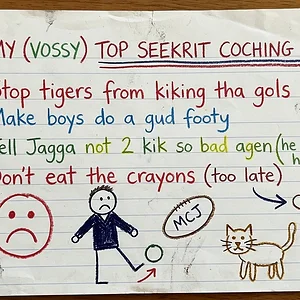 MY (VOSSY) TOP SEEKRIT COCHING
top tigers from kiking tha gols
Make boys do a gud footy
ell Jagga not 2 kik so bad agen (he
Don't eat the crayons (too late)
MCJ